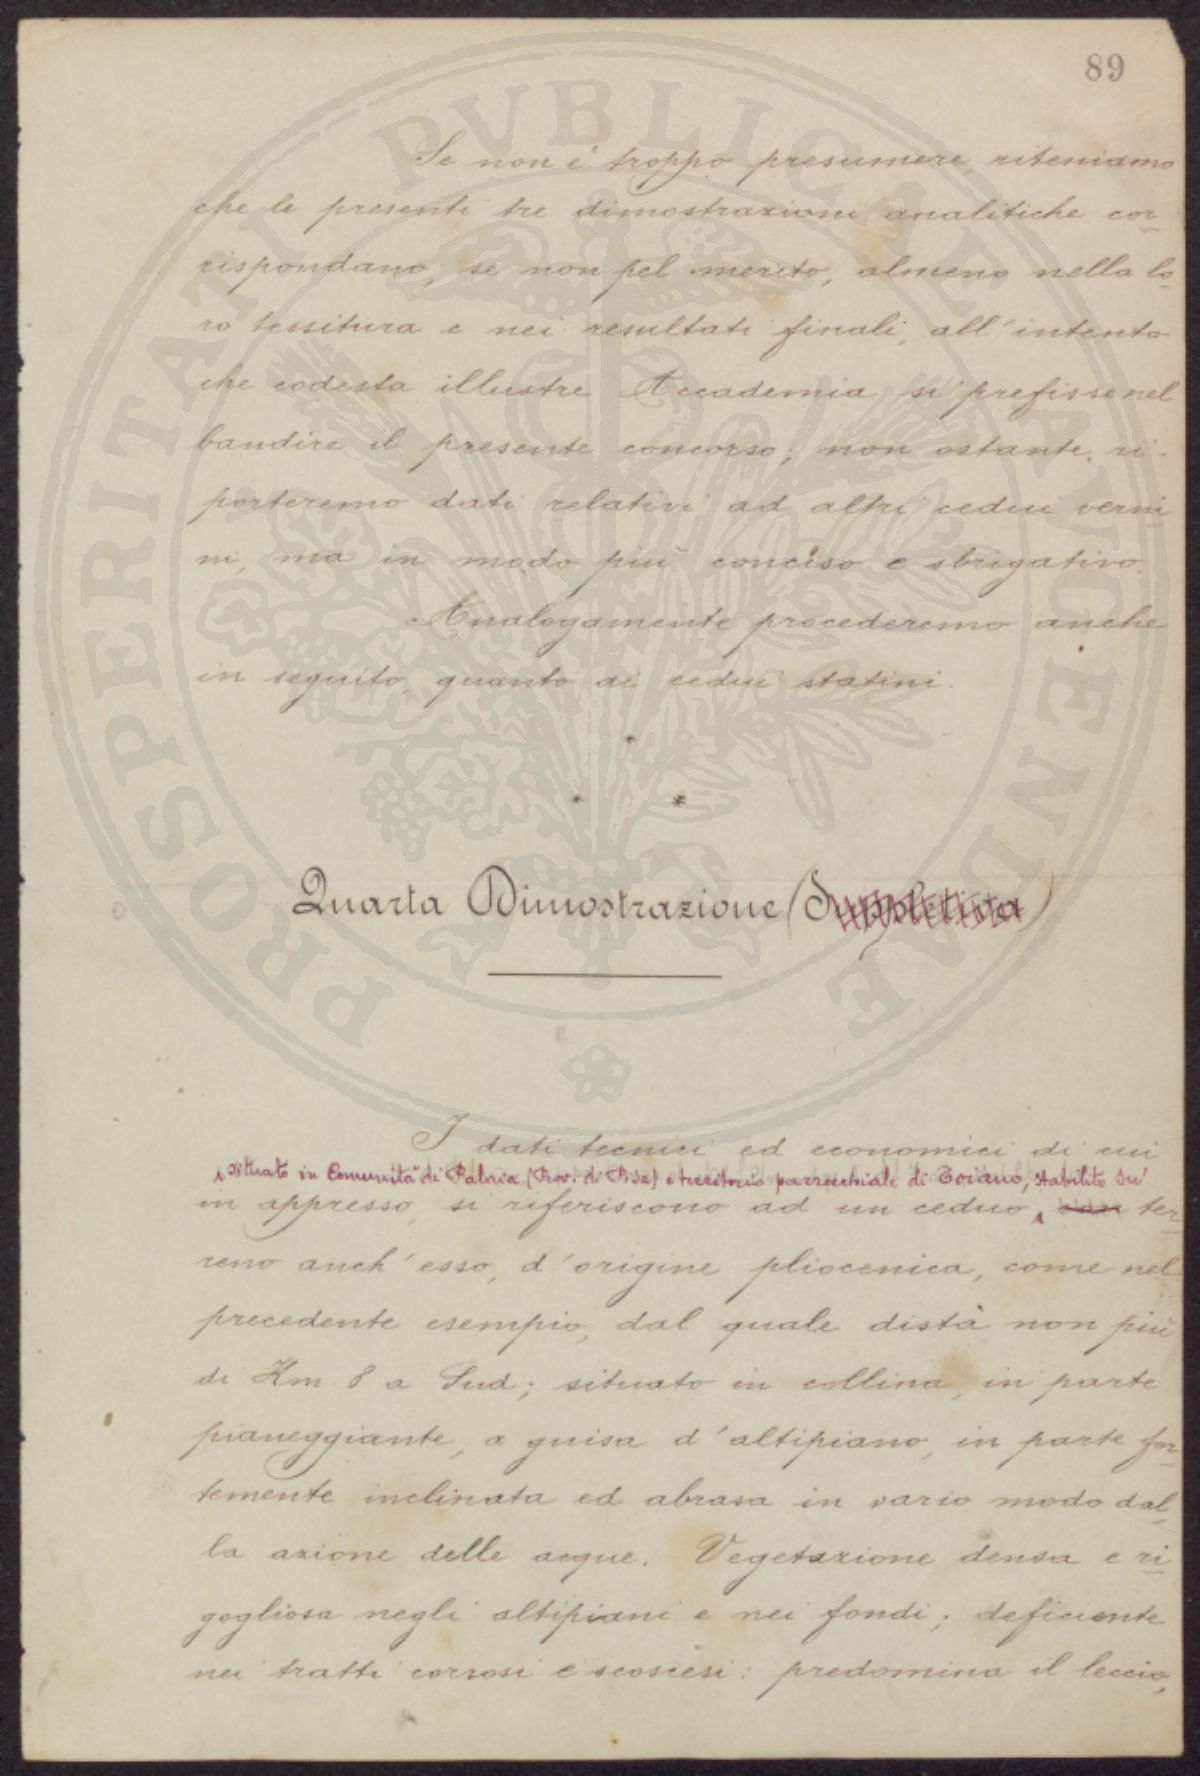 89
PROSPERITATI PVBLICAE AVGENDAE
Se non è troppo presumere, riteniamo
che le presenti tre dimostrazioni analitiche cor-
rispondano, se non pel merito, almeno nella lo-
ro tessitura e nei resultati finali, all'intento
che codesta illustre Accademia si prefisse nel
bandire il presente concorso; non ostante, ri-
porteremo dati relativi ad altri cedui verni-
ni, ma in modo più conciso e sbrigativo.
Analogamente procederemo anche
in seguito, quanto ai cedui statini.
* * *
Quarta Dimostrazione (Suppletiva)
I dati tecnici ed economici di cui
situato in Comunità di Palaia (Prov. di Pisa) e territorio parrocchiale di Toiano, stabilito su'
in appresso, si riferiscono ad un ceduo, ter-
reno anch'esso, d'origine pliocenica, come nel
precedente esempio, dal quale distà non più
di Km 8 a Sud; situato in collina, in parte
pianeggiante, a guisa d'altipiano, in parte for-
temente inclinata ed abrasa in vario modo dal-
la azione delle acque. Vegetazione densa e ri-
gogliosa negli altipiani e nei fondi; deficiente
nei tratti corrosi e scoscesi: predomina il leccio,